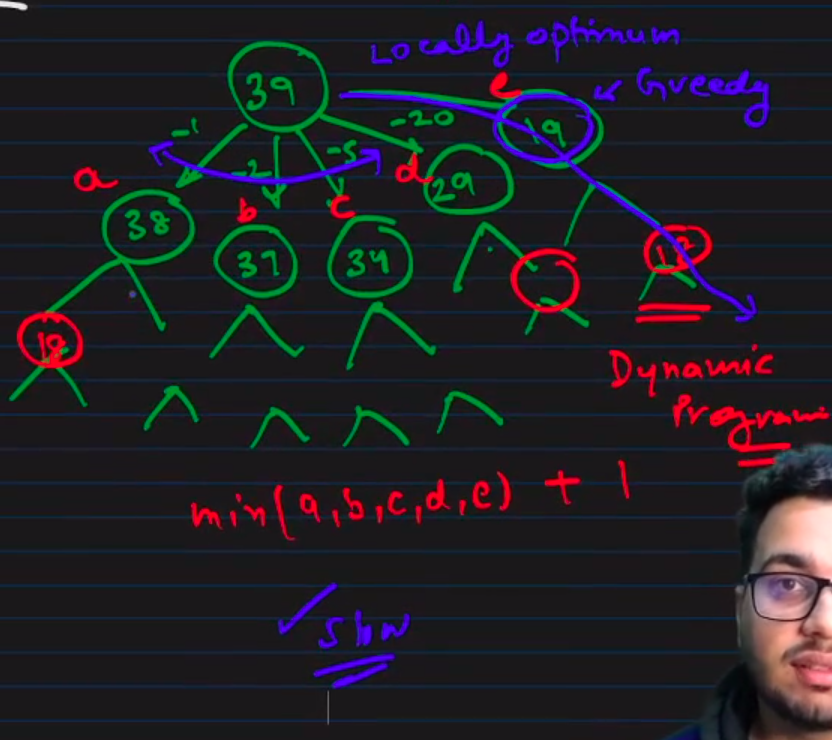 Locally optimum
39
e
Greedy
19
-1
-2
-5
-20
a
b
c
d
29
38
37
34
18
18
Dynamic
Program
min(a,b,c,d,e) + 1
Slow